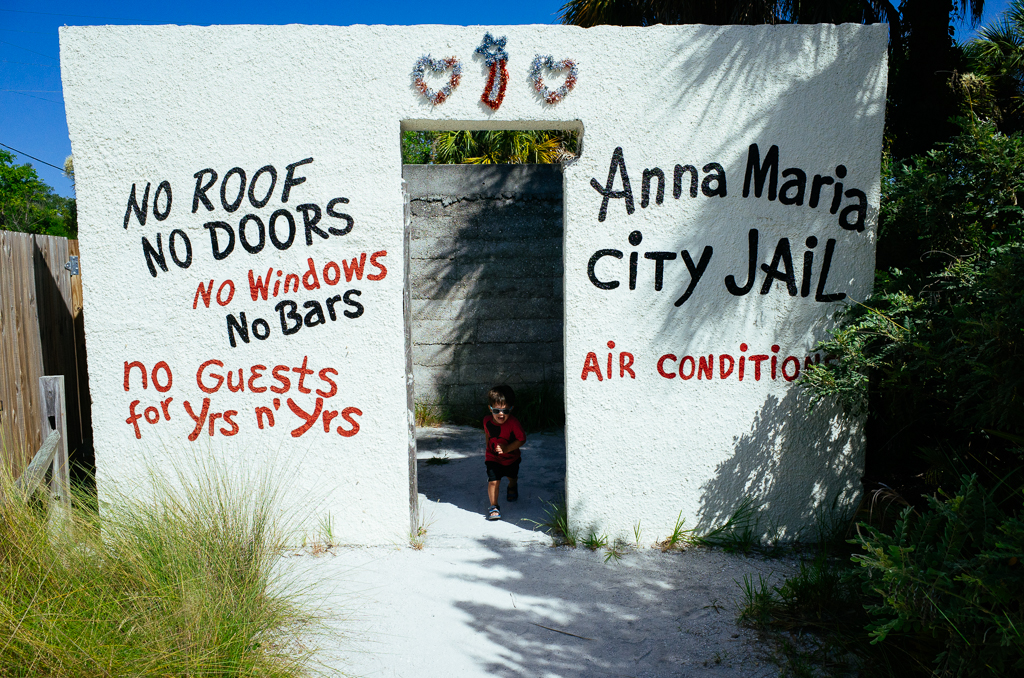 NO ROOF
NO DOORS
No Windows
No Bars
no Guests
for Yrs n' Yrs
Anna Maria
City Jail
Air